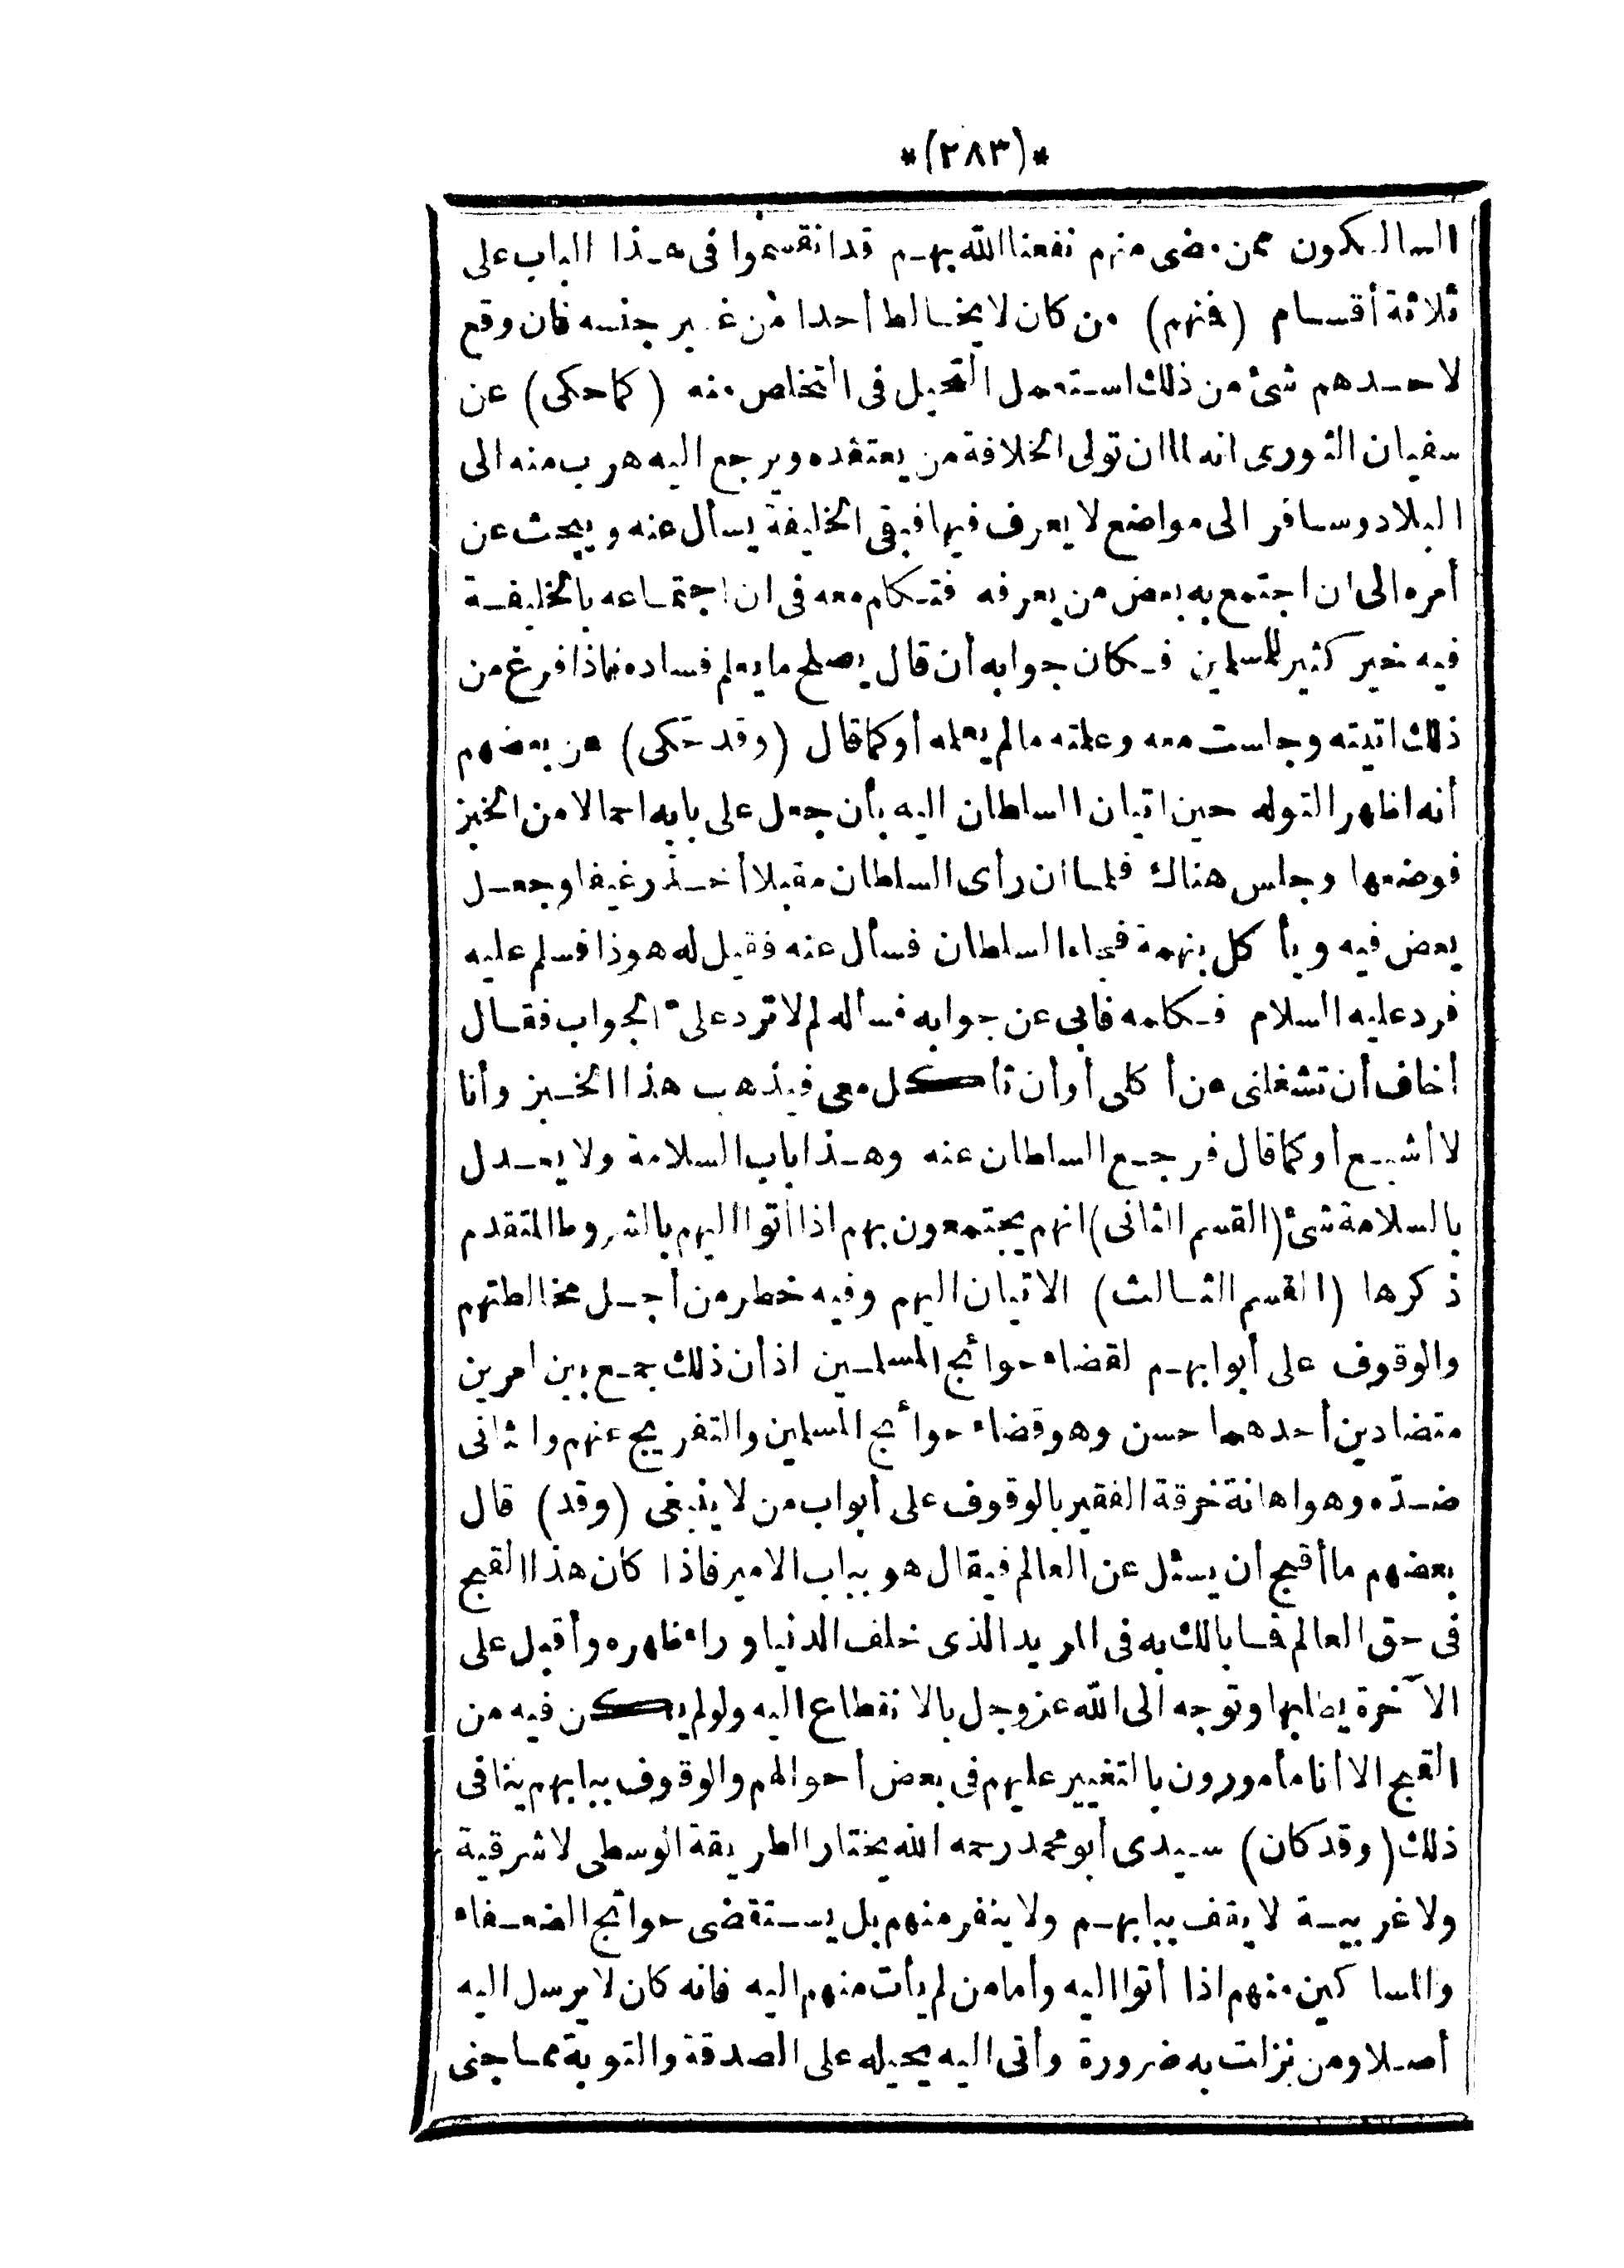 *(٢٨٣)*
السالكون ممن مضى منهم نفعنا الله بهم قد انقسموا فى هذا الباب على
ثلاثة أقسام (فمنهم) من كان لا يخالط أحدا من غير جنسه فان وقع
لاحدهم شئ من ذلك استعمل التحيل فى التخلص منه (كما حكى) عن
سفيان الثورى انه لما ان تولى الخلافة من يعتقده ويرجع اليه هرب منه الى
البلاد وسافر الى مواضع لا يعرف فيها فبقى الخليفة يسأل عنه ويبحث عن
أمره الى ان اجتمع به بعض من يعرفه فتكلم معه فى ان اجتماعه بالخليفة
فيه خير كثير للمسلمين فكان جوابه أن قال يصلح ما يعلم فساده فاذا فرغ من
ذلك اتيته وجلست معه وعلمته ما لم يعلمه أو كما قال (وقد حكى) عن بعضهم
أنه اظهر التوله حين اتيان السلطان اليه بأن جعل على بابه احمالا من الخبز
فوضعها وجلس هناك فلما ان رأى السلطان مقبلا أخذ رغيفا وجعل
يعض فيه ويأكل بنهمة فجاء السلطان فسأل عنه فقيل له هوذا فسلم عليه
فرد عليه السلام فكلمه فابى عن جوابه فسأله لم لا ترد على الجواب فقال
أخاف أن تشغلنى عن أكلى أو أن تأكل معى فيذهب هذا الخبز وأنا
لا أشبع أو كما قال فرجع السلطان عنه وهذا باب السلامة ولا يعدل
بالسلامة شئ (القسم الثانى) انهم يجتمعون بهم اذا أتوا اليهم بالشروط المتقدم
ذكرها (القسم الثالث) الاتيان اليهم وفيه خطر من أجل مخالطتهم
والوقوف على أبوابهم لقضاء حوائج المسلمين اذ أن ذلك جمع بين امرين
متضادين أحدهما حسن وهو قضاء حوائج المسلمين والتفريج عنهم والثانى
ضدّه وهو اهانة خرقة الفقير بالوقوف على أبواب من لا ينبغى (وقد) قال
بعضهم ما أقبح أن يسئل عن العالم فيقال هو بباب الامير فاذا كان هذا القبح
فى حق العالم فما بالك به فى المريد الذى خلف الدنيا وراء ظهره وأقبل على
الآخرة يطلبها وتوجه الى الله عز وجل بالانقطاع اليه ولو لم يكن فيه من
القبح الا أنا مأمورون بالتغيير عليهم فى بعض أحوالهم والوقوف ببابهم ينافى
ذلك (وقد كان) سيدى أبو محمد رحمه الله يختار الطريقة الوسطى لا شرقية
ولا غربية لا يقف ببابهم ولا ينفر منهم بل يستقضى حوائج الضعفاء
والمساكين منهم اذا أتوا اليه وأما من لم يأت منهم اليه فانه كان لا يرسل اليه
أصلا ومن نزلت به ضرورة وأتى اليه يحيله على الصدقة والتوبة مما جنى